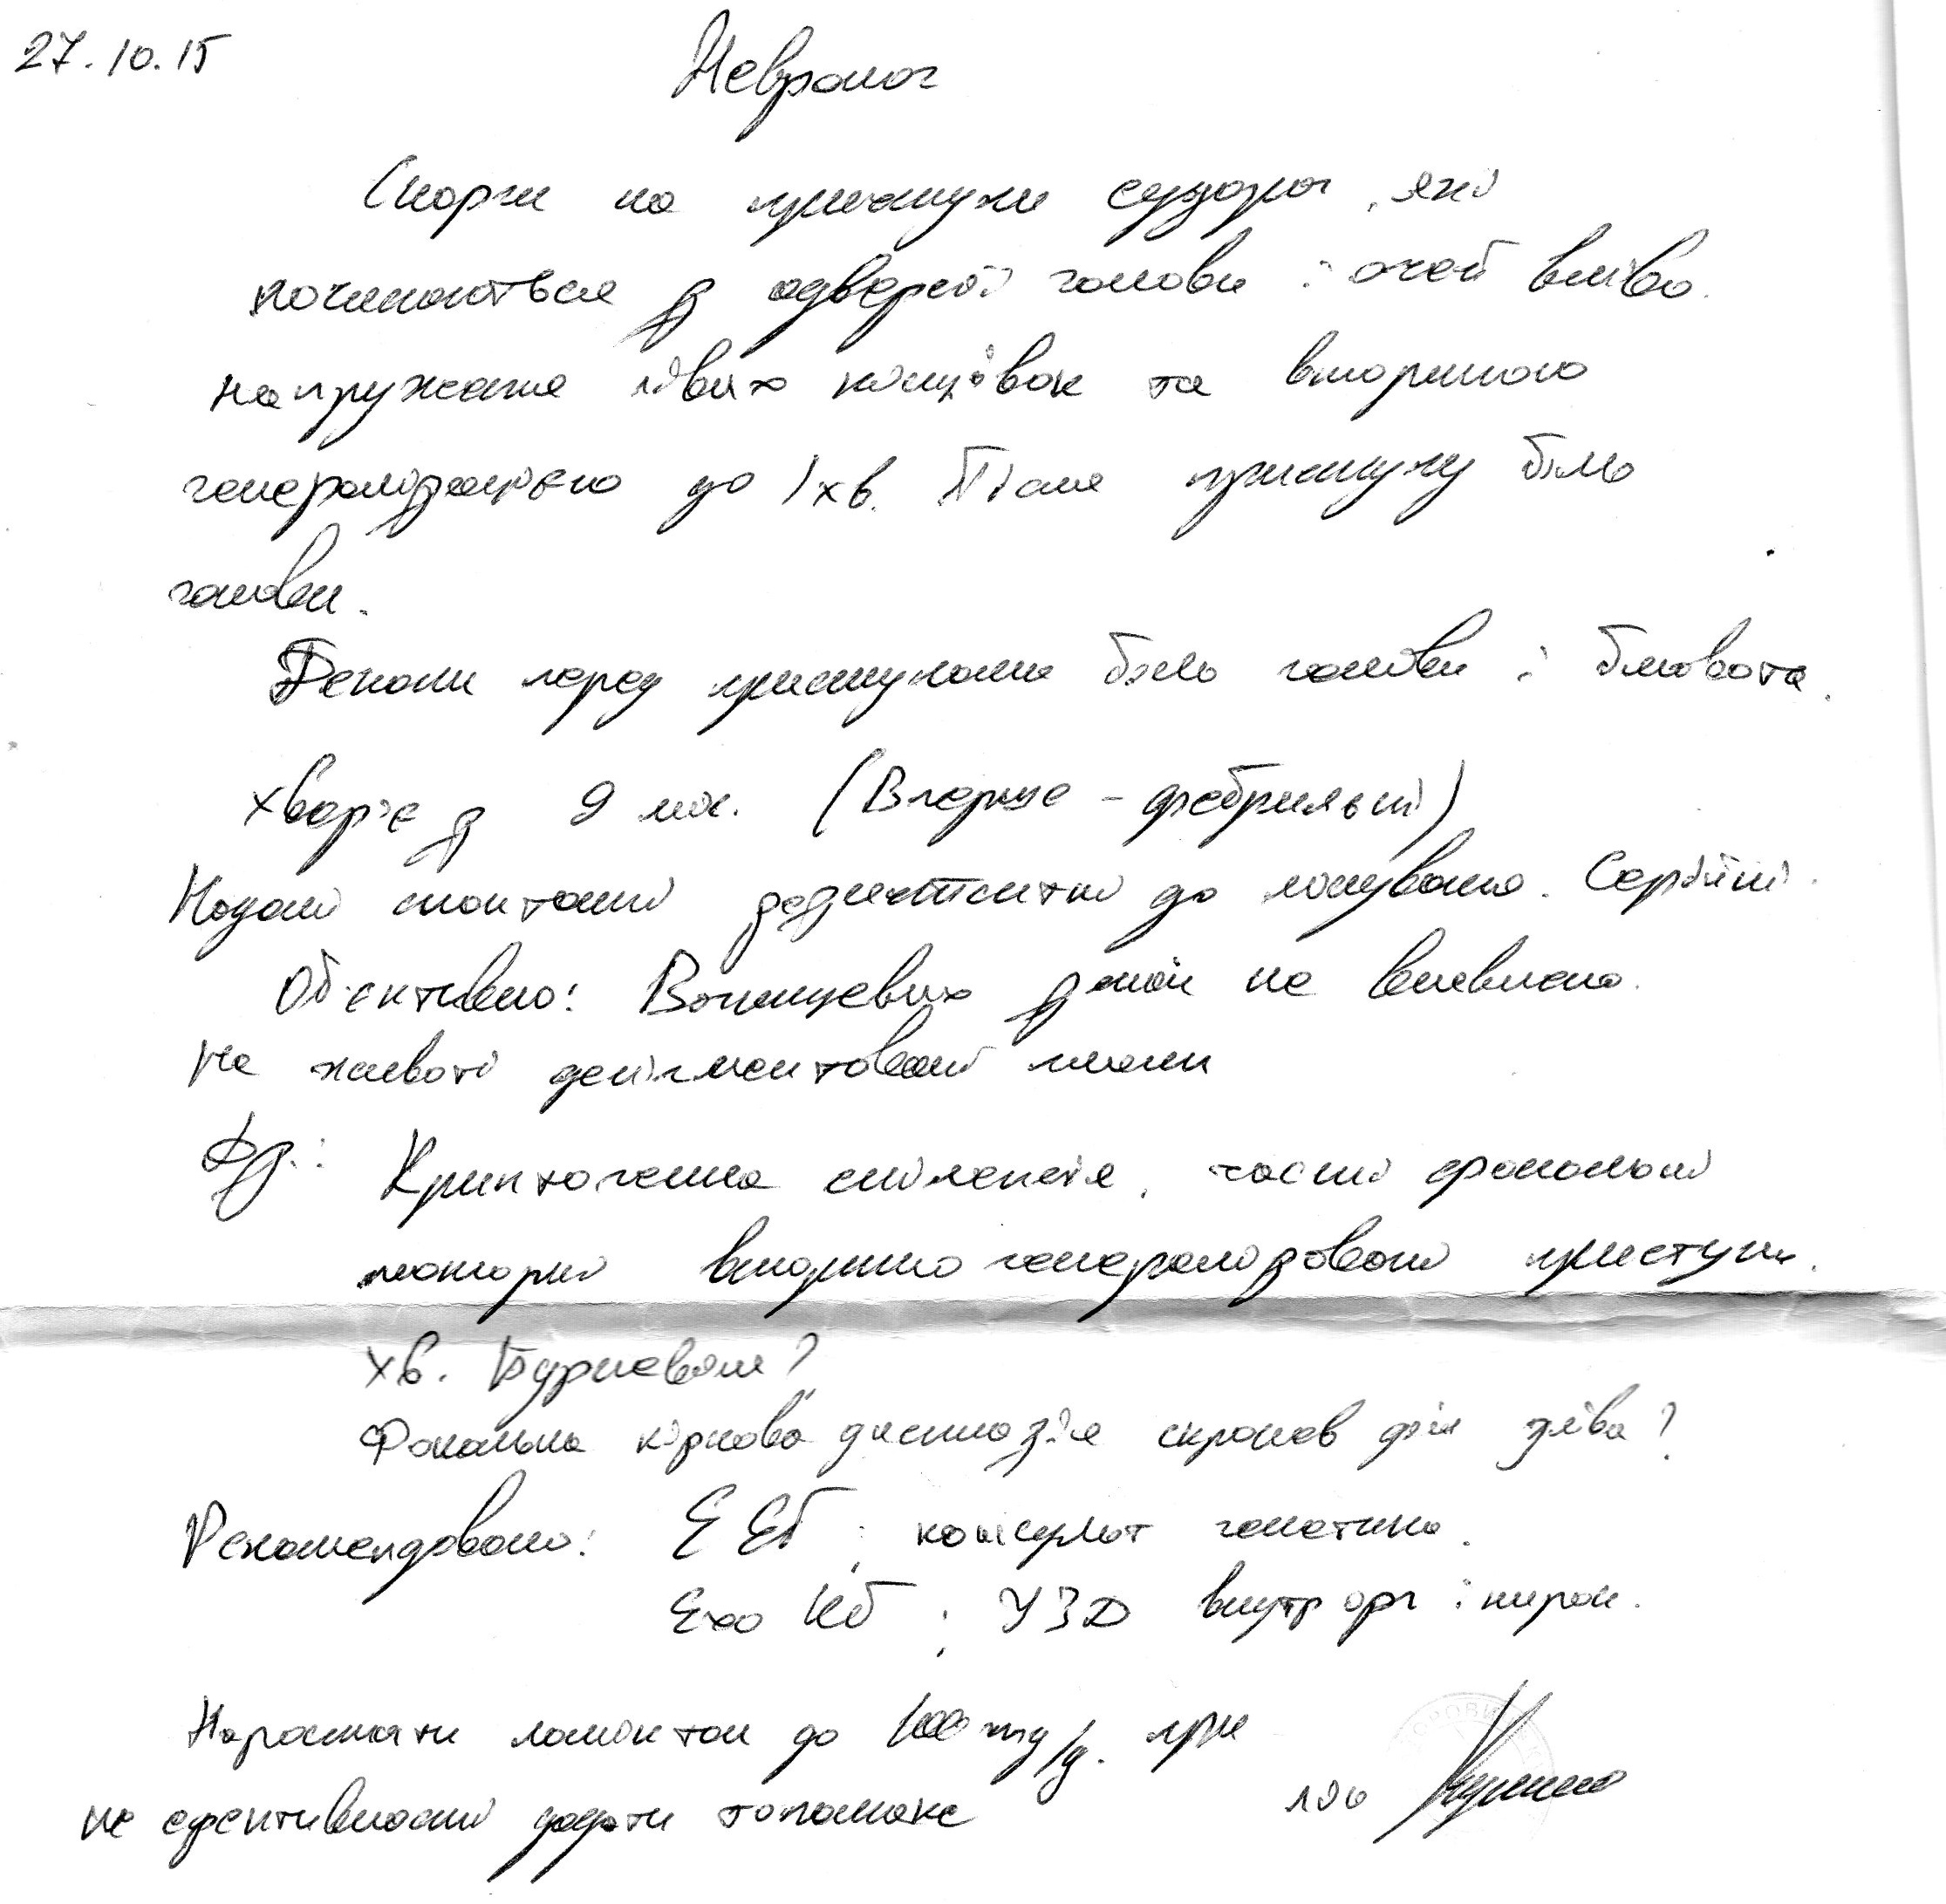 27.10.15
Невролог
Скарги на приступи судорог, які
починаються з одверенії голови і очей вліво.
напруження лівих кінцівок та вторинною
генералізацією до 1 хв. Після приступу біль
голови.
Деколи перед приступами біль голови і блювота.
Хворіє з 9 міс. (Вперше - фебрильні)
Надалі спонтанні резистентні до лікування. Серійні.
Об'єктивно: Вогнищевих змін не виявлено.
На животі депігментовані плями
Дз.: Криптогенна епілепсія, часті фокальні
моторні вторинно генералізовані приступи.
Хв. Бурневіля?
Фокальна кіркова дисплазія скронев діл зліва?
Рекомендовано: ЕЕГ; консульт генетика.
Ехо КГ; УЗД внутр орг і нирок.
Наростати ламіктал до 100 mg/д. при
не ефективності додати топамакс
лік